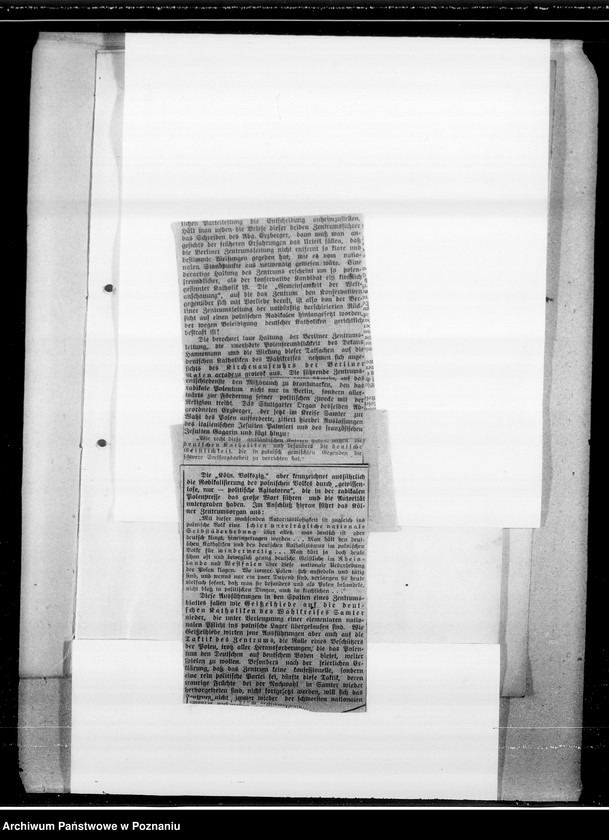 lichen Parteileitung die Entscheidung anheimzustellen.
Hält man neben die Briefe dieser beiden Zentrumsführer
das Schreiben des Abg. Erzberger, dann muß man an-
gesichts der früheren Erfahrungen das Urteil fällen, daß
die Berliner Zentrumsleitung nicht entfernt so klare und
bestimmte Weisungen gegeben hat, wie es vom natio-
nalen Standpunkte aus notwendig gewesen wäre. Eine
derartige Haltung des Zentrums erscheint um so polen-
freundlicher, als der konservative Kandidat ein
Katholik ist. Die „Gemeinsamkeit der Welt-
anschauung", auf die das Zentrum den Konservativen
gegenüber sich mit Vorliebe beruft, ist also von der Ber-
liner Zentrumsleitung der
sicht auf einen polnischen Radikalen hintangesetzt worden,
der wegen Beleidigung deutscher Katholiken gerichtlich
bestraft ist!
Die berechnet laue Haltung der Berliner Zentrums-
leitung, die unerhörte Polenfreundlichkeit des Dekans
Hannemann und die Wirkung dieser Tatsachen auf die
deutschen Katholiken des Wahlkreises nehmen sich ange-
sichts des Kirchenaufruhrs der Berliner
Polen geradezu grotesk aus. Die führende Zentrums-
entschiedenste den Mißbrauch zu brandmarken, den das
radikale Polentum nicht nur in Berlin, sondern aller-
wärts zur Förderung seiner politischen Zwecke mit der
Religion treibt. Das Stuttgarter Organ desselben Ab-
geordneten Erzberger, der jetzt im Kreise Samter zur
Wahl des Polen aufforderte, zitiert hierbei Auslassungen
des italienischen Jesuiten Palmieri und des französischen
Jesuiten Gagarin und fügt hinzu:
„Wie recht diese ausländischen Autoren haben, wissen die
deutschen Katholiken und besonders die deutsche
Geistlichkeit, die in polnisch gemischten Gegenden die
schwere Seelsorgearbeit zu verrichten hat."
Die „Köln. Volksztg." aber kennzeichnet ausführlich
die Radikalisierung des polnischen Volkes durch „gewissen-
lose, nur — politische Agitatoren", die in der radikalen
Polenpresse das große Wort führen und die Autorität
untergraben haben. Im Anschluß hieran führt das Köl-
ner Zentrumsorgan aus:
„Mit dieser wachsenden Autoritätslosigkeit ist zugleich ins
polnische Volk eine schier unerträgliche nationale
Selbstüberhebung über alles, was deutsch ist oder
deutsch klingt, hineingetragen worden ... Man hält den deut-
schen Katholiken und den deutschen Katholizismus im polnischen
Volke für minderwertig ... Man hört ja doch heute
schon oft und beweglich genug deutsche Geistliche im Rhein-
lande und Westfalen über diese nationale Ueberhebung
der Polen klagen. Wo immer Polen sich ansiedeln und tätig
sind, und wenns nur ein paar Dutzend sind, verlangen sie heute
vielfach sofort, daß man sie besonders und als Polen behandele,
nicht bloß in politischen Dingen, auch in kirchlichen ..."
Diese Ausführungen in den Spalten eines Zentrums-
blattes fallen wie Geißelhiebe auf die deut-
schen Katholiken des Wahlkreises Samter
nieder, die unter Verleugnung einer elementaren natio-
nalen Pflicht ins polnische Lager übergelaufen sind. Wie
Geißelhiebe wirken jene Ausführungen aber auch auf die
Taktik des Zentrums, die Rolle eines Beschützers
der Polen, trotz aller Herausforderungen, die das Polen-
tum den Deutschen auf deutschem Boden bietet, weiter
spielen zu wollen. Besonders nach der feierlichen Er-
klärung, daß das Zentrum keine konfessionelle, sondern
eine rein politische Partei sei, dürfte diese Taktik, deren
traurige Früchte bei der Nachwahl in Samter wieder
hervorgetreten sind, nicht fortgesetzt werden, will sich das
Zentrum nicht immer wieder der schwersten nationalen
Archiwum Państwowe w Poznaniu